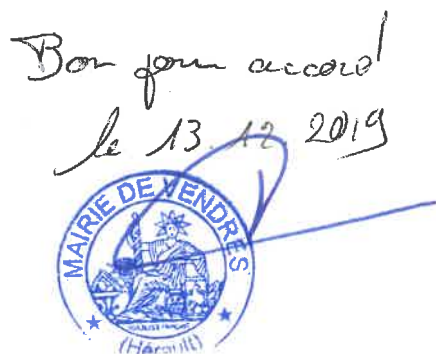 Bon pour accord
le 13.12.2019
MAIRIE DE VENDRES
(Hérault)